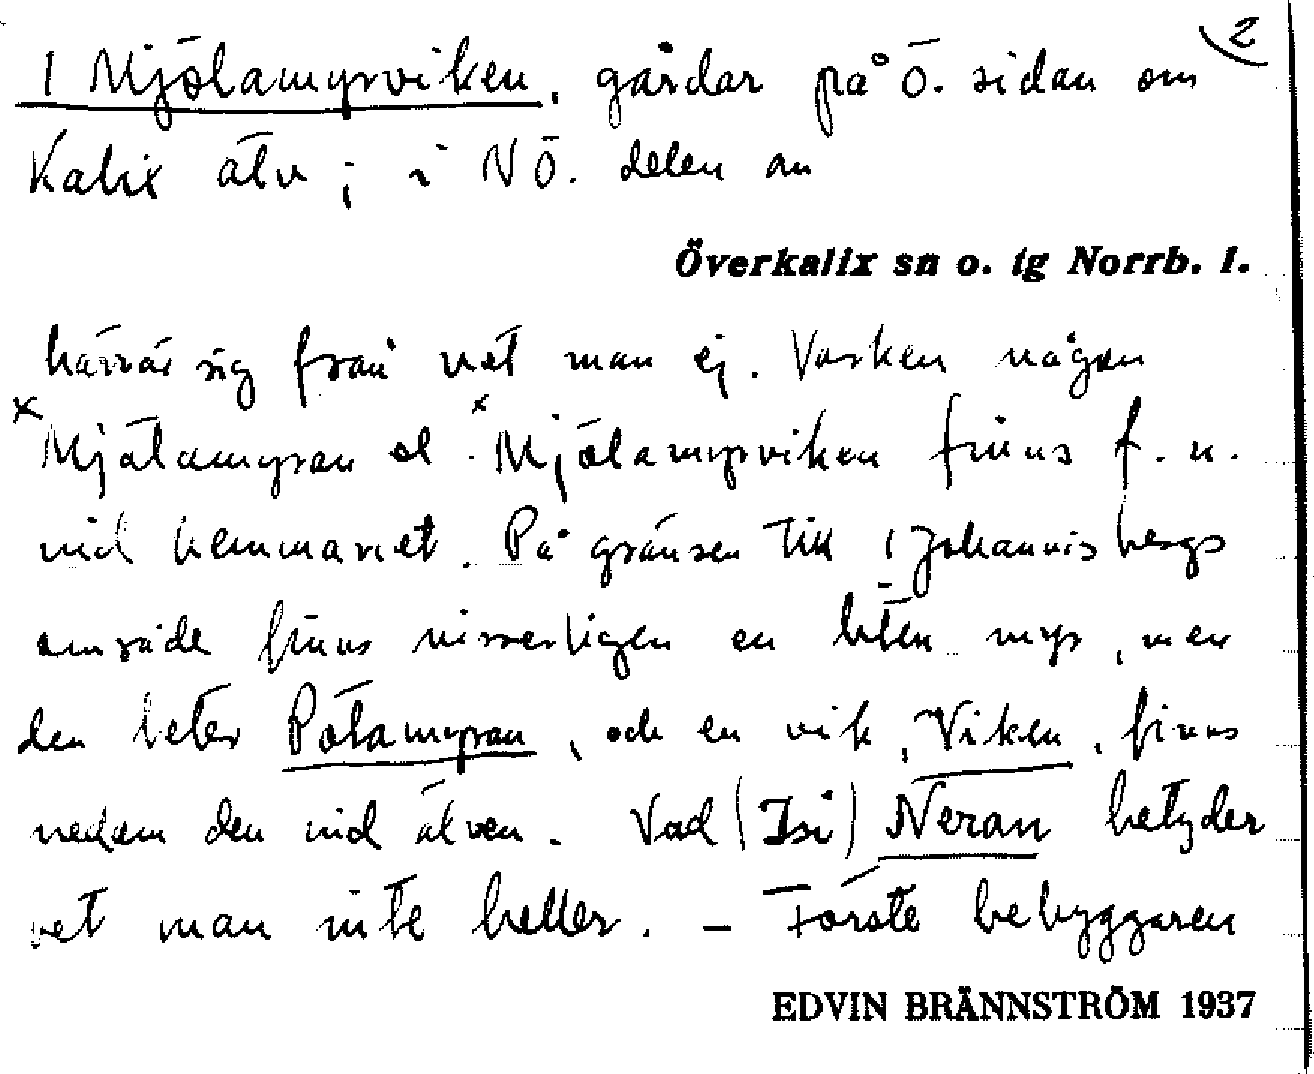 2
1 Mjölamyrviken, gårdar på Ö. sidan om
Kalix älv; i NÖ. delen av
Överkalix sn o. tg Norrb. l.
härrör sig från vet man ej. Varken någon
×Mjölamyran el. ×Mjölamyrviken finns f. n.
vid hemmanet. På gränsen till 1 Johannisbergs
område finns visserligen en liten myr, men
den heter Potamyran, och en vik, Viken, finns
nedom den vid älven. Vad (Isi) Neran betyder
vet man inte heller. – Förste bebyggaren
EDVIN BRÄNNSTRÖM 1937